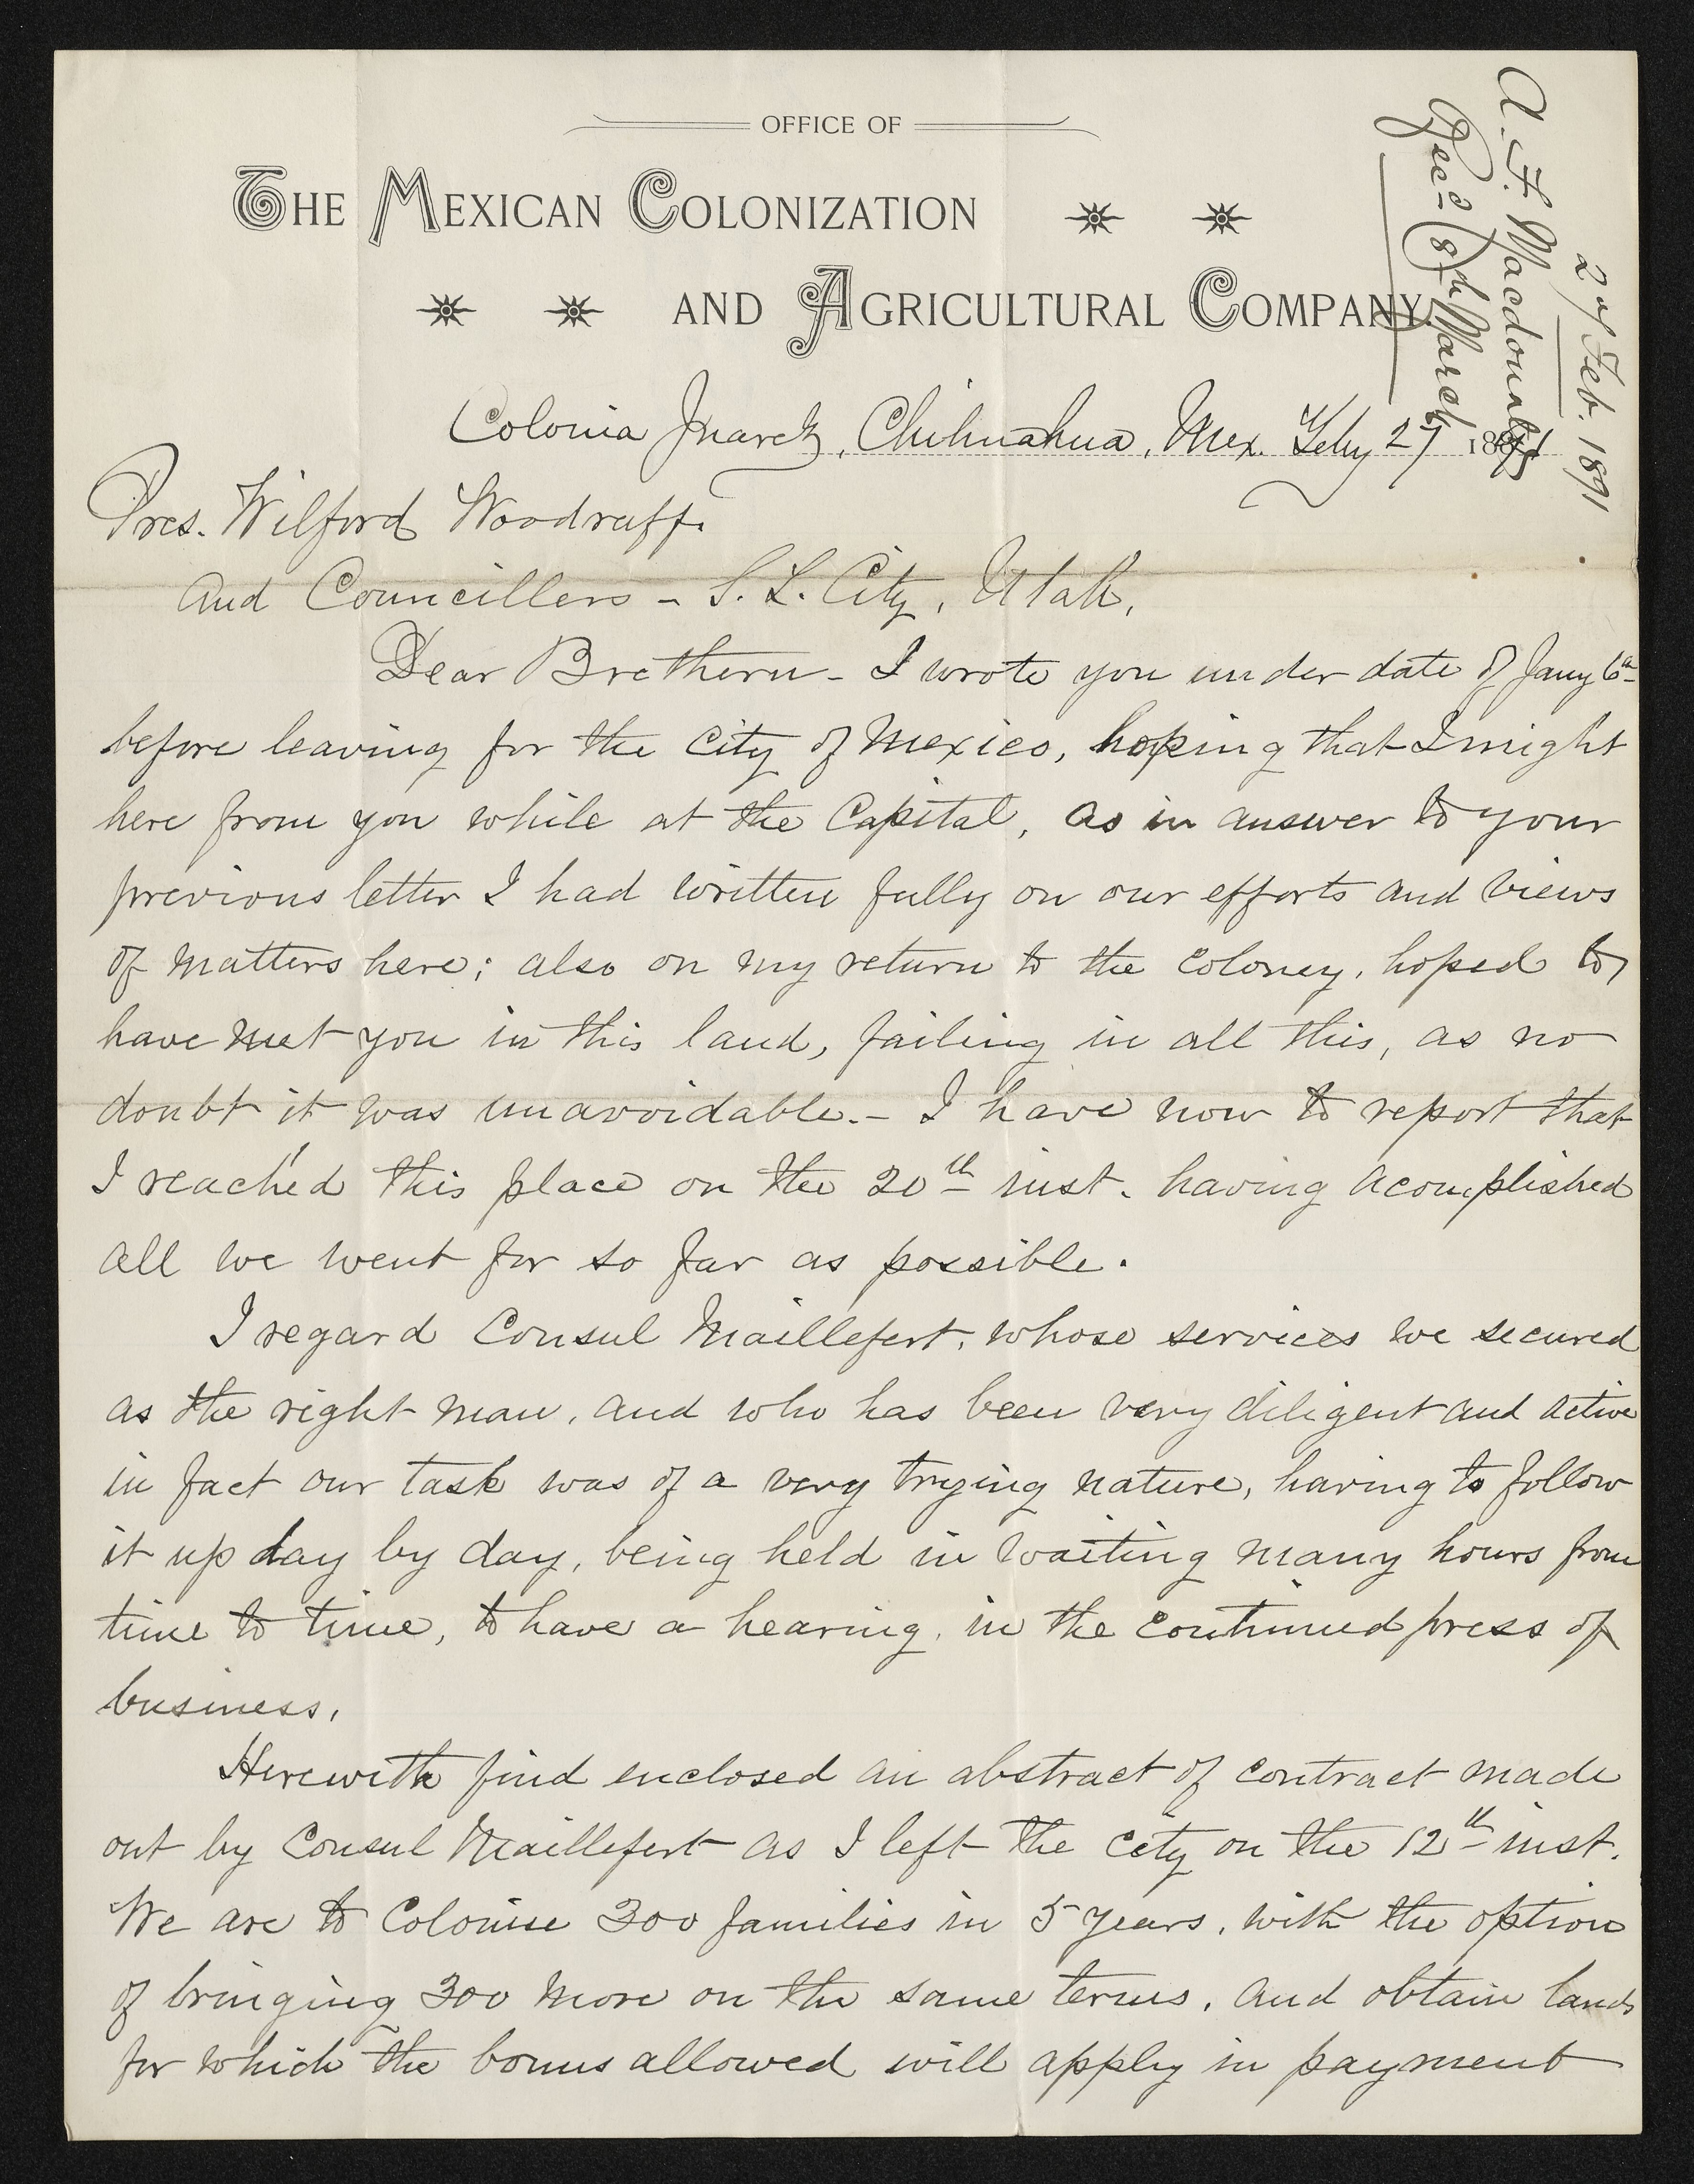 OFFICE OF
THE MEXICAN COLONIZATION
AND AGRICULTURAL COMPANY.
A. F. Macdonald
27 Feb. 1891
Rec.d 8th March
Colonia Juarez, Chihuahua, Mex. Feby 27 1891
Pres. Wilford Woodruff.
and Councillers - S. L. City, Utah,
Dear Brethern - I wrote you under date of Jany 6th
before leaving for the City of Mexico, hoping that I might
here from you while at the Capital, as in answer to your
previous letter I had written fully on our efforts and views
of matters here; also on my return to the coloney, hoped to
have met you in this land, failing in all this, as no
doubt it was unavoidable. - I have now to report that
I reached this place on the 20th inst. having acomplished
all we went for so far as possible.
I regard Consul Maillefert, whose services we secured
as the right man, and who has been very diligent and active
in fact our task was of a very trying nature, having to follow
it up day by day, being held in waiting many hours from
time to time, to have a hearing, in the continued press of
business,
Herewith find enclosed an abstract of contract made
out by Consul Maillefert as I left the city on the 12th inst.
We are to Colonise 300 families in 5 years, with the option
of bringing 300 more on the same terms, and obtain lands
for which the bonus allowed will apply in payment